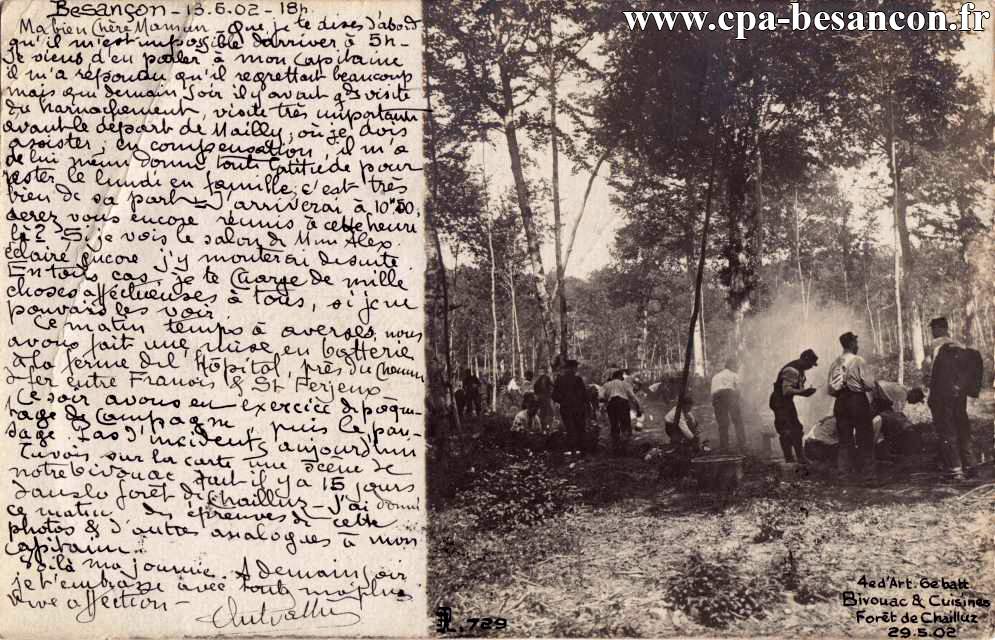 Besançon - 13.6.02 - 18h.
Ma bien Chère Maman - Que je te dises d'abord
qu'il m'est impossible d'arriver à 5h -
Je viens d'en parler à mon Capitaine
il m'a répondu qu'il regrettait beaucoup
mais que demain soir il y avait gde visite
du harnachement, visite très importante
avant le départ de Mailly, où je dois
assister; en compensation, il m'a
de lui même donné toute latitude pour
rester le lundi en famille; c'est très
bien de sa part - J'arriverai à 10h50,
serez vous encore réunis à cette heure
là? Si je vois le salon de Mme Alex
éclairé encore j'y monterai de suite
En tous cas, je te charge de mille
choses affectueuses à tous, si je ne
pouvais les voir.
Ce matin temps à averses, nous
avons fait une mise en batterie
à la ferme de l'Hôpital, près du chemin
de fer entre Franois & St Ferjeux
Ce soir avons eu exercice de
de campagne, puis le pan-
sage. Pas d'incidents aujourd'hui
Tu vois sur la carte une scène de
notre bivouac fait il y a 15 jours
dans la forêt de Chailluz - J'ai donné
ce matin des épreuves de cette
photos & d'autres analogues à mon
capitaine.
Voilà ma journée. A demain soir
je t'embrasse avec toute ma plus
vive affection -
www.cpa-besancon.fr
4e d'Art. 6e batt.
Bivouac & Cuisines
Forêt de Chailluz
29.5.02
L. 729